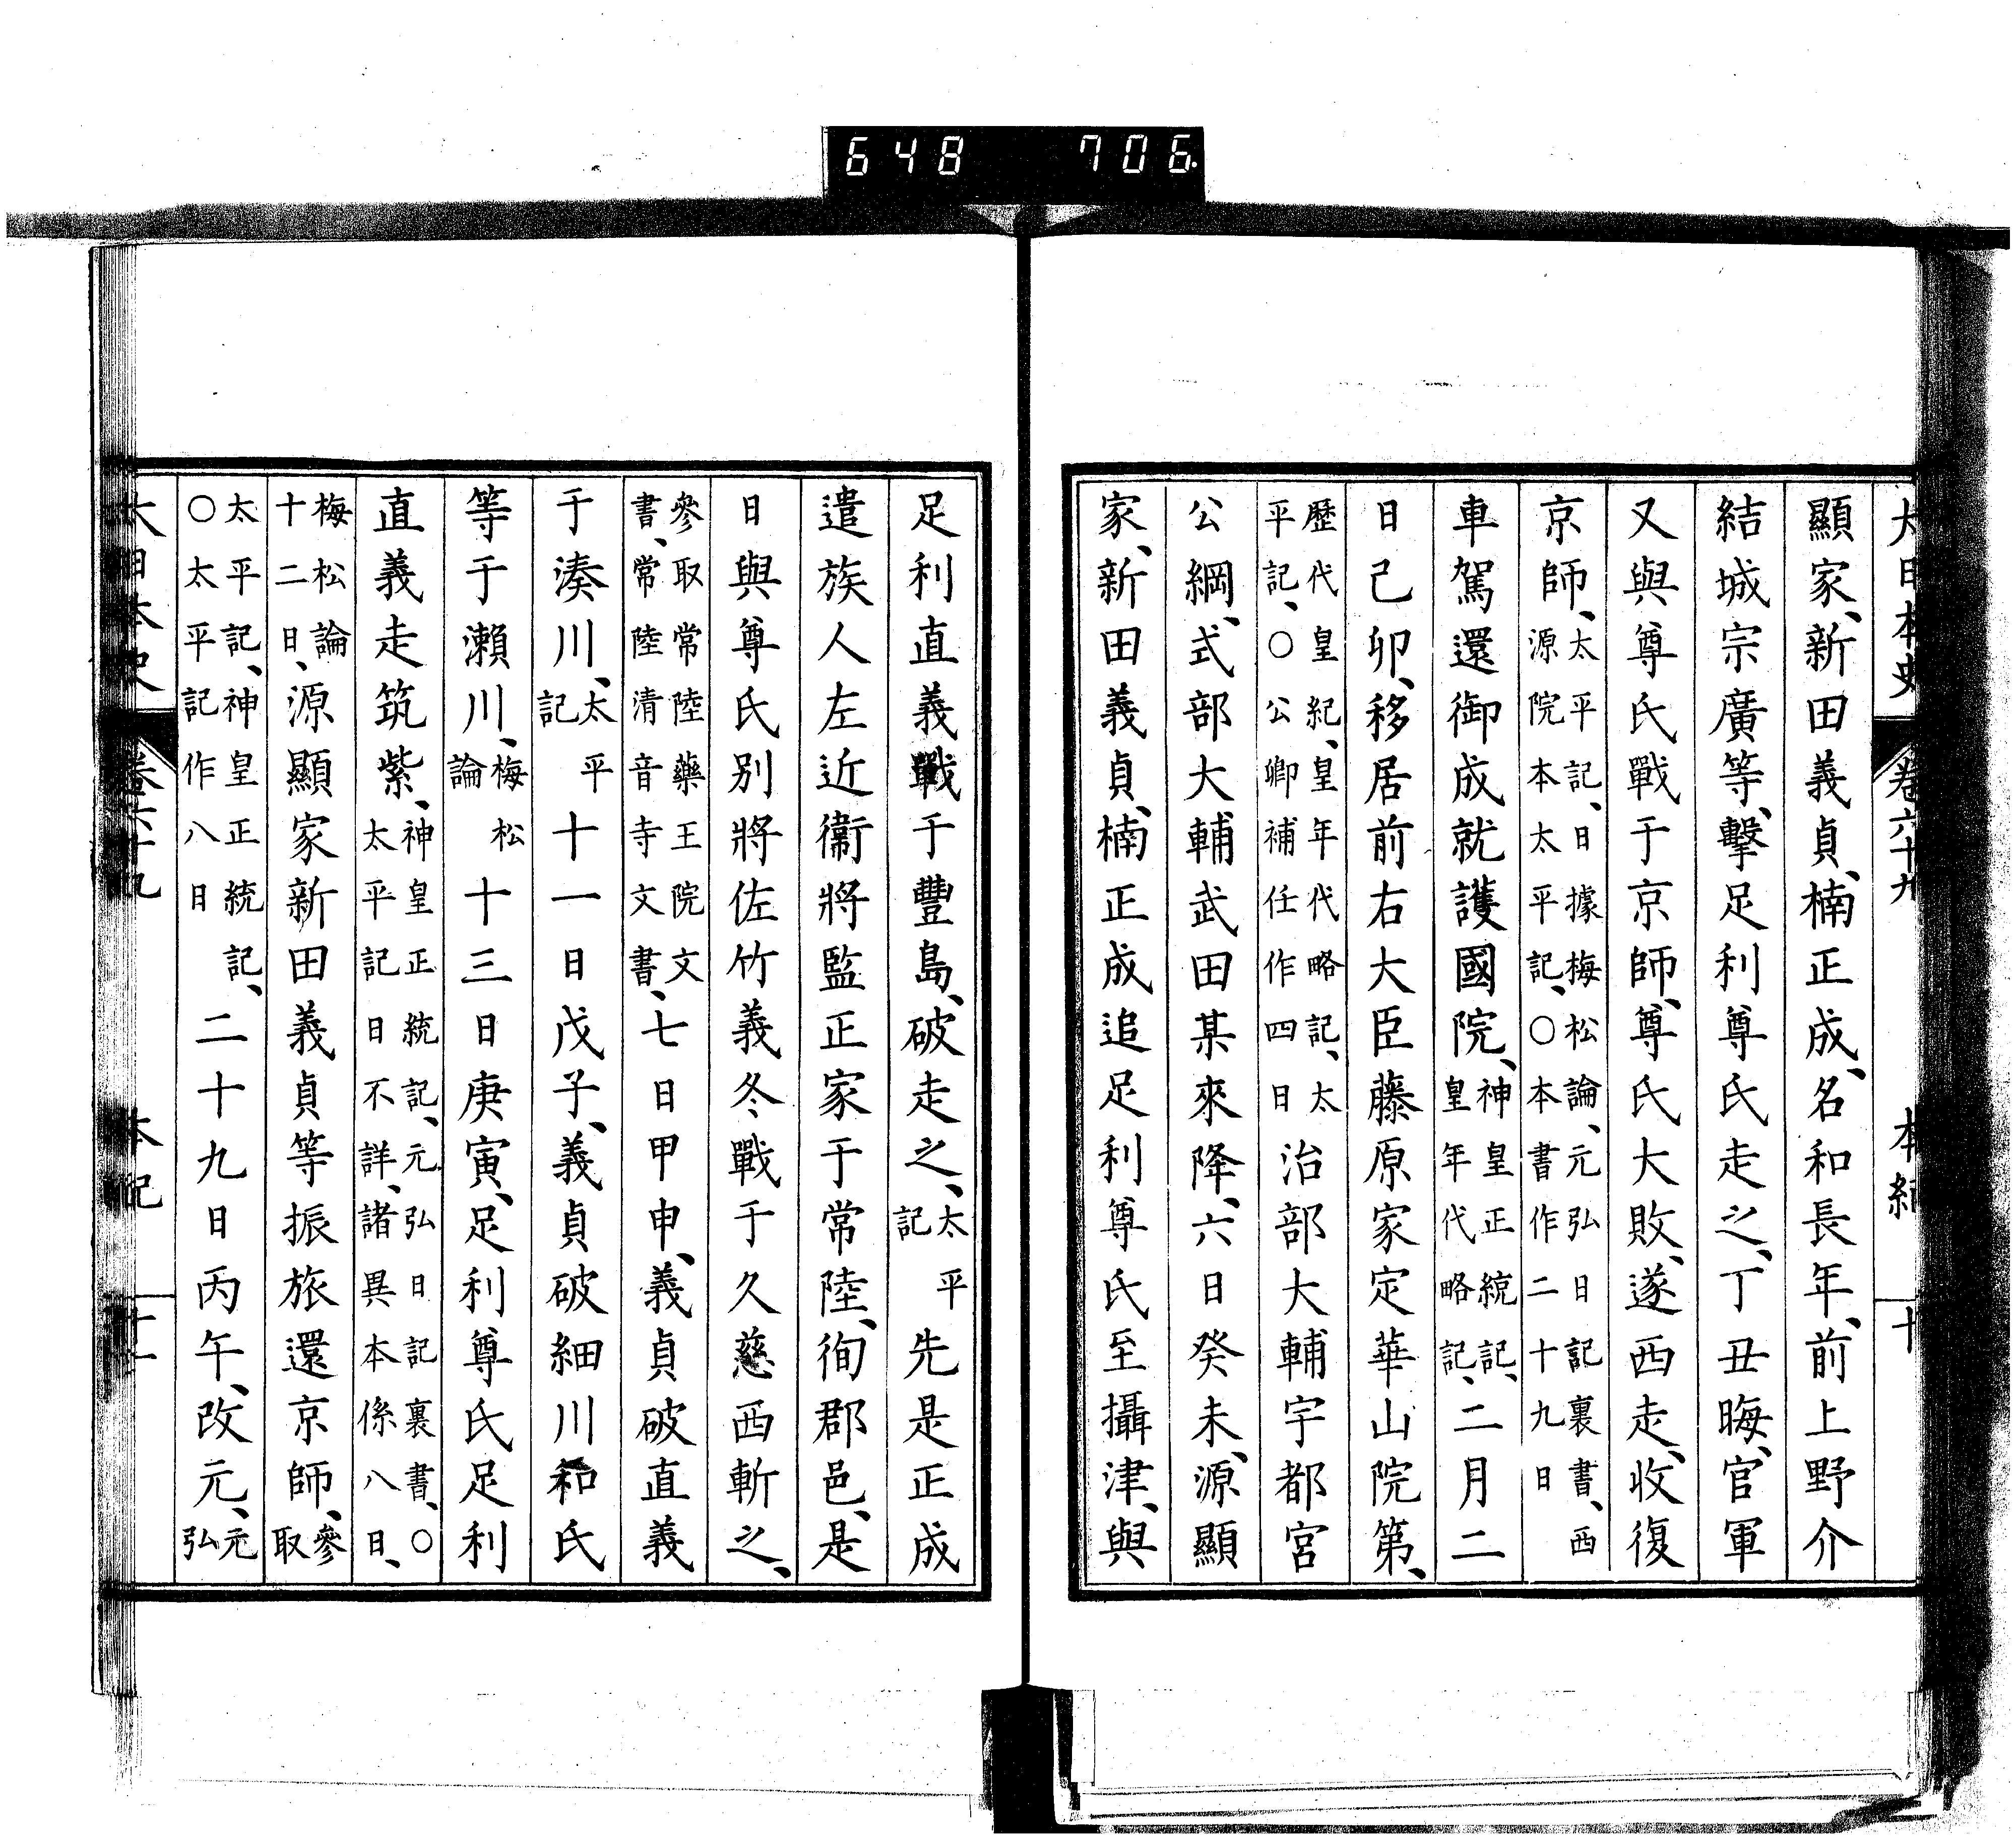 648 706
大日本史 卷六十九 本紀 十
顯家、新田義貞、楠正成、名和長年、前上野介
結城宗廣等、擊足利尊氏走之、丁丑晦、官軍
又與尊氏戰于京師、尊氏大敗、遂西走、收復
京師、太平記、日據梅松論、元弘日記裏書、西源院本太平記、〇本書作二十九日
車駕還御成就護國院、神皇正統記、皇年代略記、二月二
日己卯、移居前右大臣藤原家定華山院第、
歷代皇紀、皇年代略記、太平記、〇公卿補任作四日治部大輔宇都宮
公綱、式部大輔武田某來降、六日癸未、源顯
家、新田義貞、楠正成追足利尊氏至攝津、與
足利直義戰于豐島、破走之、太平記先是正成
遣族人左近衞將監正家于常陸、徇郡邑、是
日與尊氏別將佐竹義冬戰于久慈西斬之、
參取常陸藥王院文書、常陸清音寺文書、七日甲申、義貞破直義
于湊川、太平記十一日戊子、義貞破細川和氏
等于瀨川、梅松論十三日庚寅、足利尊氏足利
直義走筑紫、神皇正統記、元弘日記裏書、〇太平記日不詳、諸異本係八日、
梅松論十二日、源顯家新田義貞等振旅還京師、參取
太平記、神皇正統記、〇太平記作八日二十九日丙午、改元、元弘
大日本史 卷六十九 本紀 十一